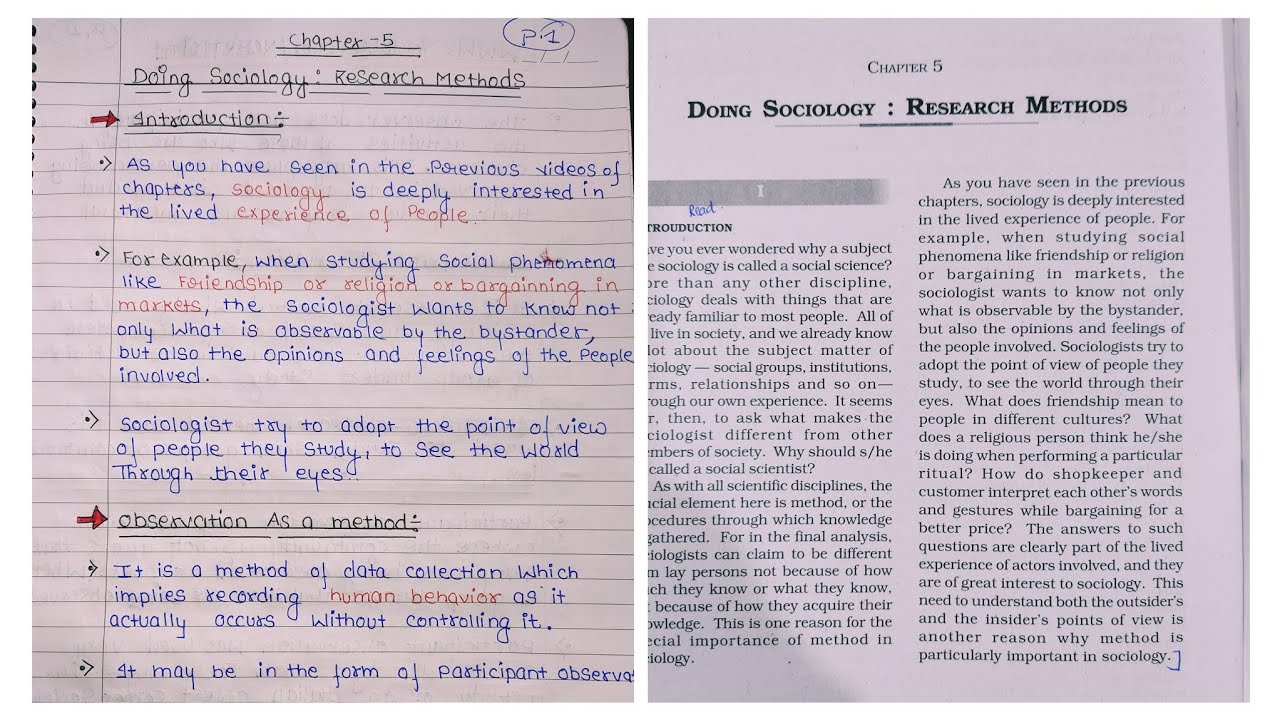 Chapter-5
P.1
Doing Sociology: Research Methods
Introduction:
As you have seen in the previous videos of
chapters, sociology is deeply interested in
the lived experience of People.
For example, when studying Social phenomena
like Friendship or religion or bargainning in
markets, the sociologist wants to know not
only what is observable by the bystander,
but also the opinions and feelings of the People
involved.
Sociologist try to adopt the point of view
of people they study, to see the world
Through their eyes.
Observation As a method:
It is a method of data collection which
implies recording human behavior as it
actually occurs without controlling it.
It may be in the form of Participant observa
CHAPTER 5
DOING SOCIOLOGY : RESEARCH METHODS
I
Read
TRODUCTION
ve you ever wondered why a subject
e sociology is called a social science?
ore than any other discipline,
ciology deals with things that are
eady familiar to most people. All of
live in society, and we already know
lot about the subject matter of
ciology — social groups, institutions,
rms, relationships and so on—
rough our own experience. It seems
r, then, to ask what makes the
ciologist different from other
mbers of society. Why should s/he
called a social scientist?
As with all scientific disciplines, the
ucial element here is method, or the
ocedures through which knowledge
gathered. For in the final analysis,
ciologists can claim to be different
m lay persons not because of how
ch they know or what they know,
t because of how they acquire their
owledge. This is one reason for the
ecial importance of method in
ciology.
As you have seen in the previous
chapters, sociology is deeply interested
in the lived experience of people. For
example, when studying social
phenomena like friendship or religion
or bargaining in markets, the
sociologist wants to know not only
what is observable by the bystander,
but also the opinions and feelings of
the people involved. Sociologists try to
adopt the point of view of people they
study, to see the world through their
eyes. What does friendship mean to
people in different cultures? What
does a religious person think he/she
is doing when performing a particular
ritual? How do shopkeeper and
customer interpret each other's words
and gestures while bargaining for a
better price? The answers to such
questions are clearly part of the lived
experience of actors involved, and they
are of great interest to sociology. This
need to understand both the outsider's
and the insider's points of view is
another reason why method is
particularly important in sociology.